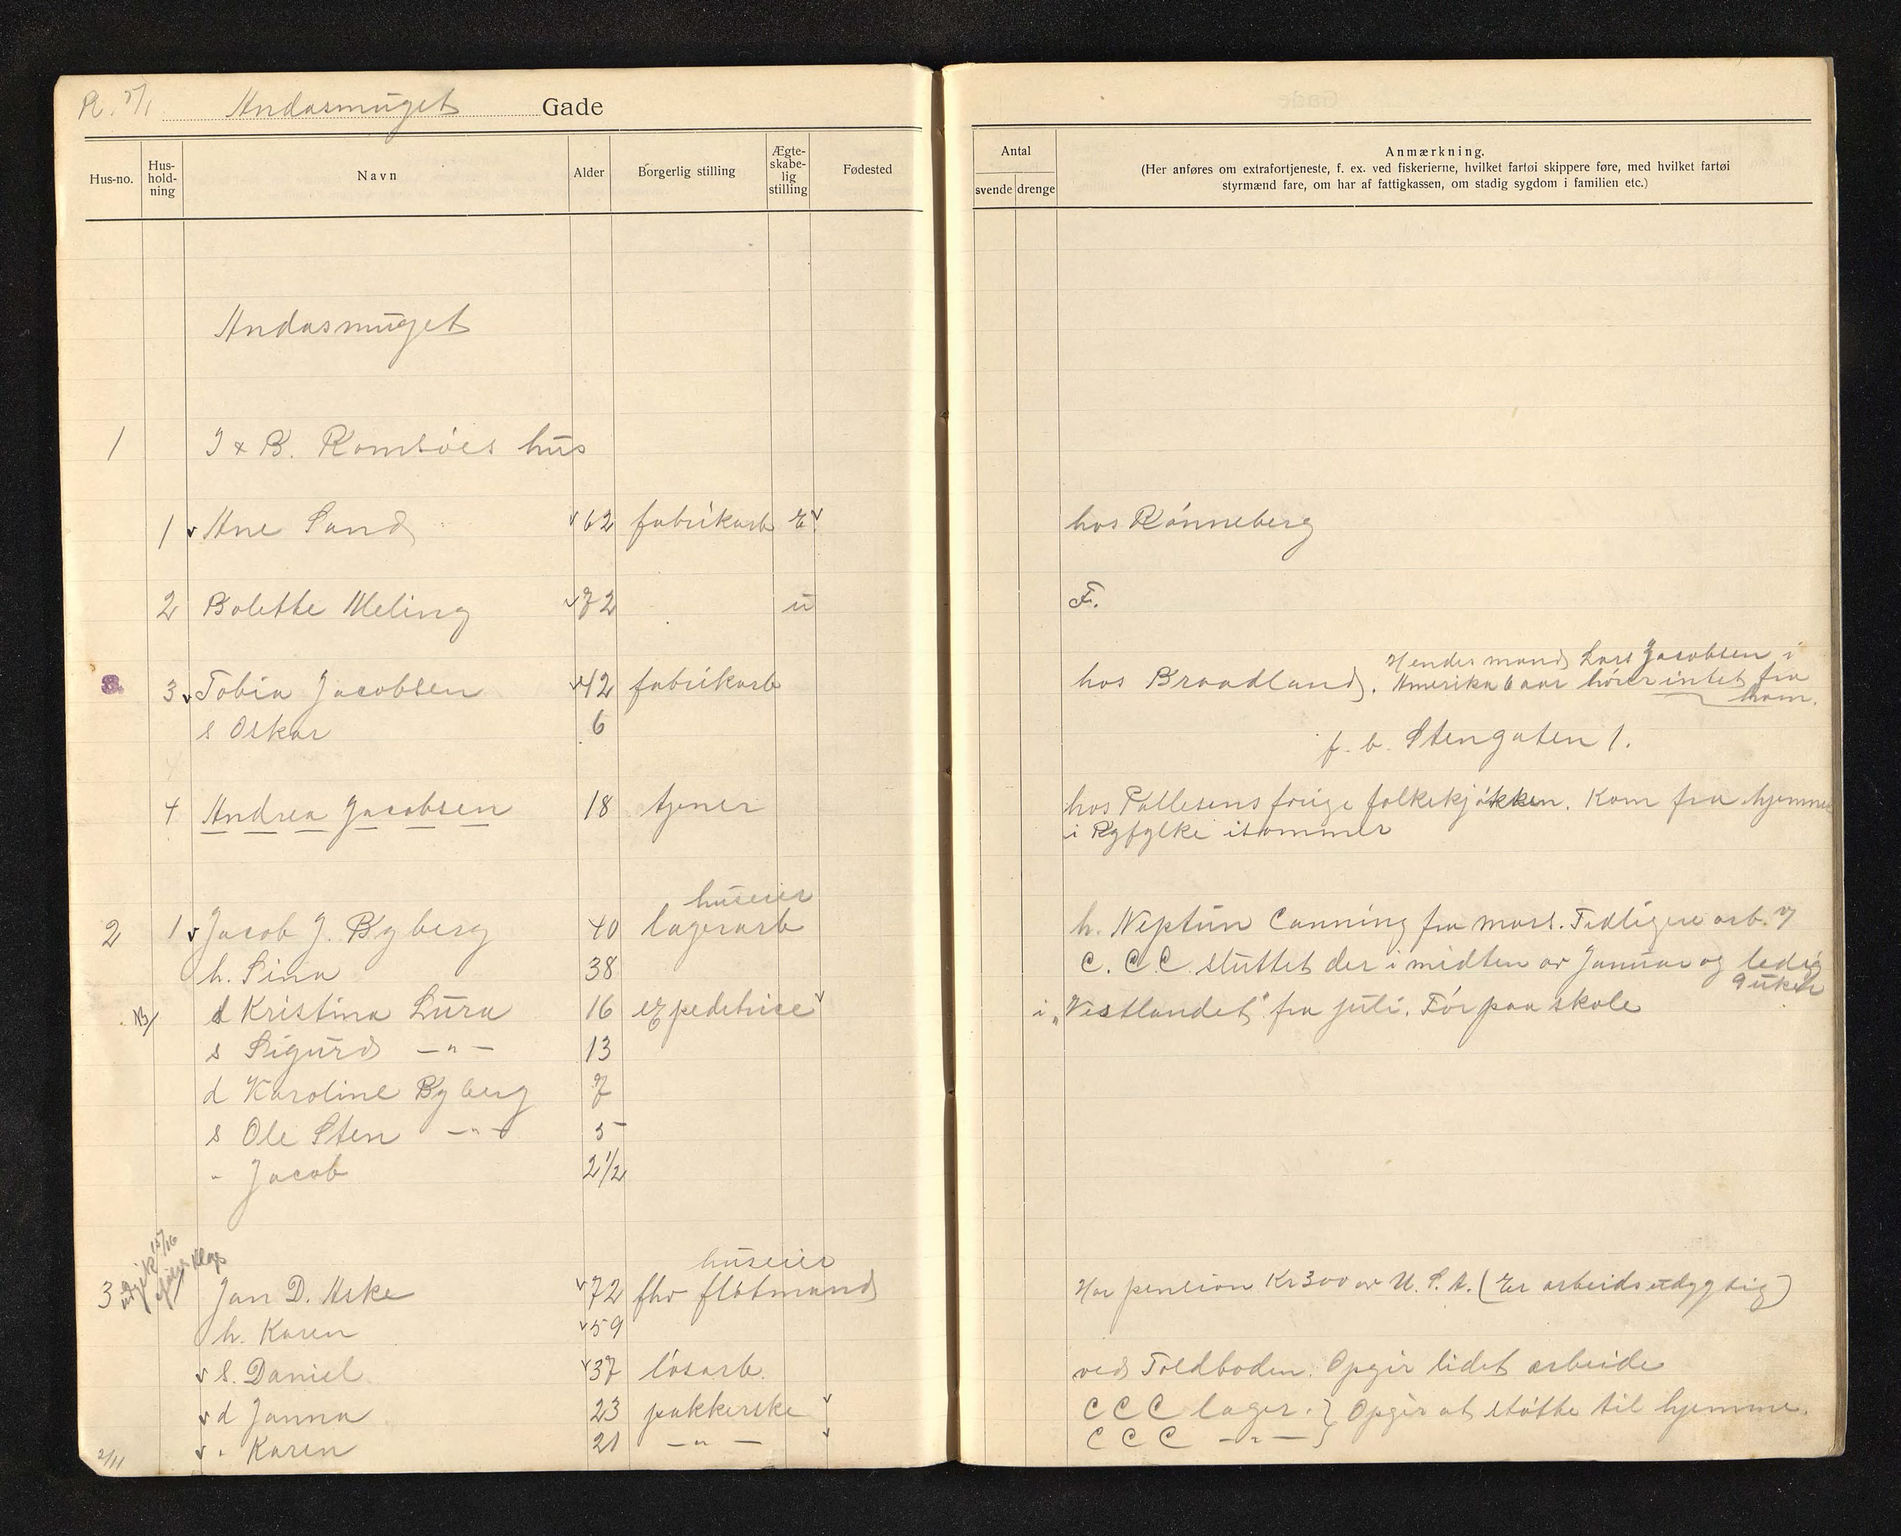 R. 7/1 Andasmuget Gade
Hus-no. Hus-hold-ning Navn Alder Borgerlig stilling Ægte-skabe-lig stilling Fødested
Antal svende drenge
Anmærkning.
(Her anføres om extrafortjeneste, f. ex. ved fiskerierne, hvilket fartøi skippere føre, med hvilket fartøi
styrmænd fare, om har af fattigkassen, om stadig sygdom i familien etc.)
Andasmuget
1 J & B. Romsöes hus
1 Ane Sand 62 fabrikarb E hos Rönneberg
2 Bolette Meling 72 u F.
Hendes mand Lars Jacobsen i
8. 3 Tobia Jacobsen 42 fabrikarb hos Braadland. Amerika 6 aar hörer intet fra
ham.
s Oskar 6
f. b. Stengaten 1.
4 Andrea Jacobsen 18 tjener hos Pallesens forige folkekjökken. Kom fra hjemmet
i Ryfylke isommer
huseier
2 1 Jacob J. Byberg 40 lagerarb h. Neptun Canning fra mars. Tidligere arb. v/
h. Sina 38 C. C.C. sluttet der i midten av Januar og ledig
9 uker
d Kristina Lura 16 expeditrice i "Vestlandet" fra juli. För paa skole
s Sigurd -"- 13
d Karoline Byberg 7
s Ole Sten -"- 5
" Jacob 2 1/2
huseier
3 Jan D. Aske 72 fhv flötmand Har pension Kr 300 av U. S. A. (Er arbeidsudygtig)
h. Karen 59
s. Daniel 37 lösarb. ved Toldboden. Opgir lidet arbeide
d Janna 23 pakkerske CCC lager. } Opgir at stötte til hjemme.
2/11 " Karen 21 -"- CCC -"-